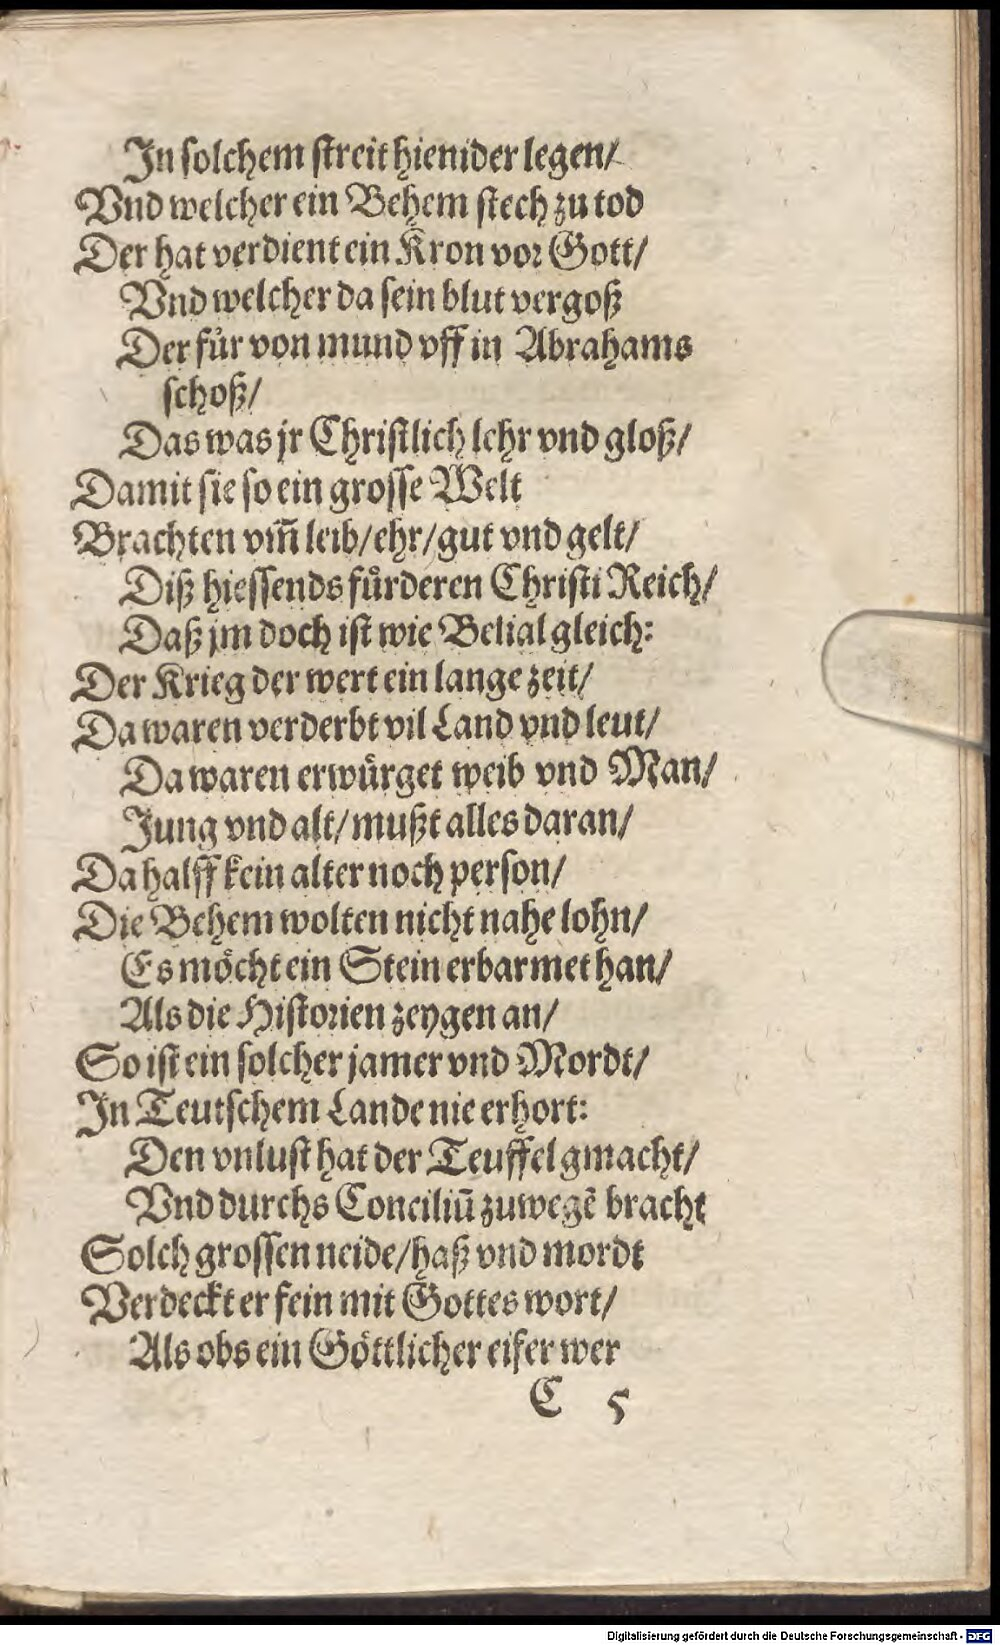 In ſolchem ſtreit hienider legen/
Vnd welcher ein Behem ſtech zu tod
Der hat verdient ein Kron vor Gott/
Vnd welcher da ſein blut vergoß
Der fuͤr von mund vff in Abrahams
ſchoß/
Das was jr Chriſtlich lehr vnd gloß/
Damit ſie ſo ein groſſe Welt
Brachten vm̃ leib/ehr/gut vnd gelt/
Diß hieſſends fuͤrderen Chriſti Reich/
Daß jm doch iſt wie Belial gleich:
Der Krieg der wert ein lange zeit/
Da waren verderbt vil Land vnd leut/
Da waren erwuͤrget weib vnd Man/
Jung vnd alt/mußt alles daran/
Da halff kein alter noch perſon/
Die Behem wolten nicht nahe lohn/
Es moͤcht ein Stein erbarmet han/
Als die Hiſtorien zeygen an/
So iſt ein ſolcher jamer vnd Mordt/
In Teutſchem Lande nie erhort:
Den vnluſt hat der Teuffel gmacht/
Vnd durchs Conciliũ zuwegẽ bracht
Solch groſſen neide/haß vnd mordt
Verdeckt er fein mit Gottes wort/
Als obs ein Goͤttlicher eifer wer
C 5
Digitalisierung gefördert durch die Deutsche Forschungsgemeinschaft - DFG